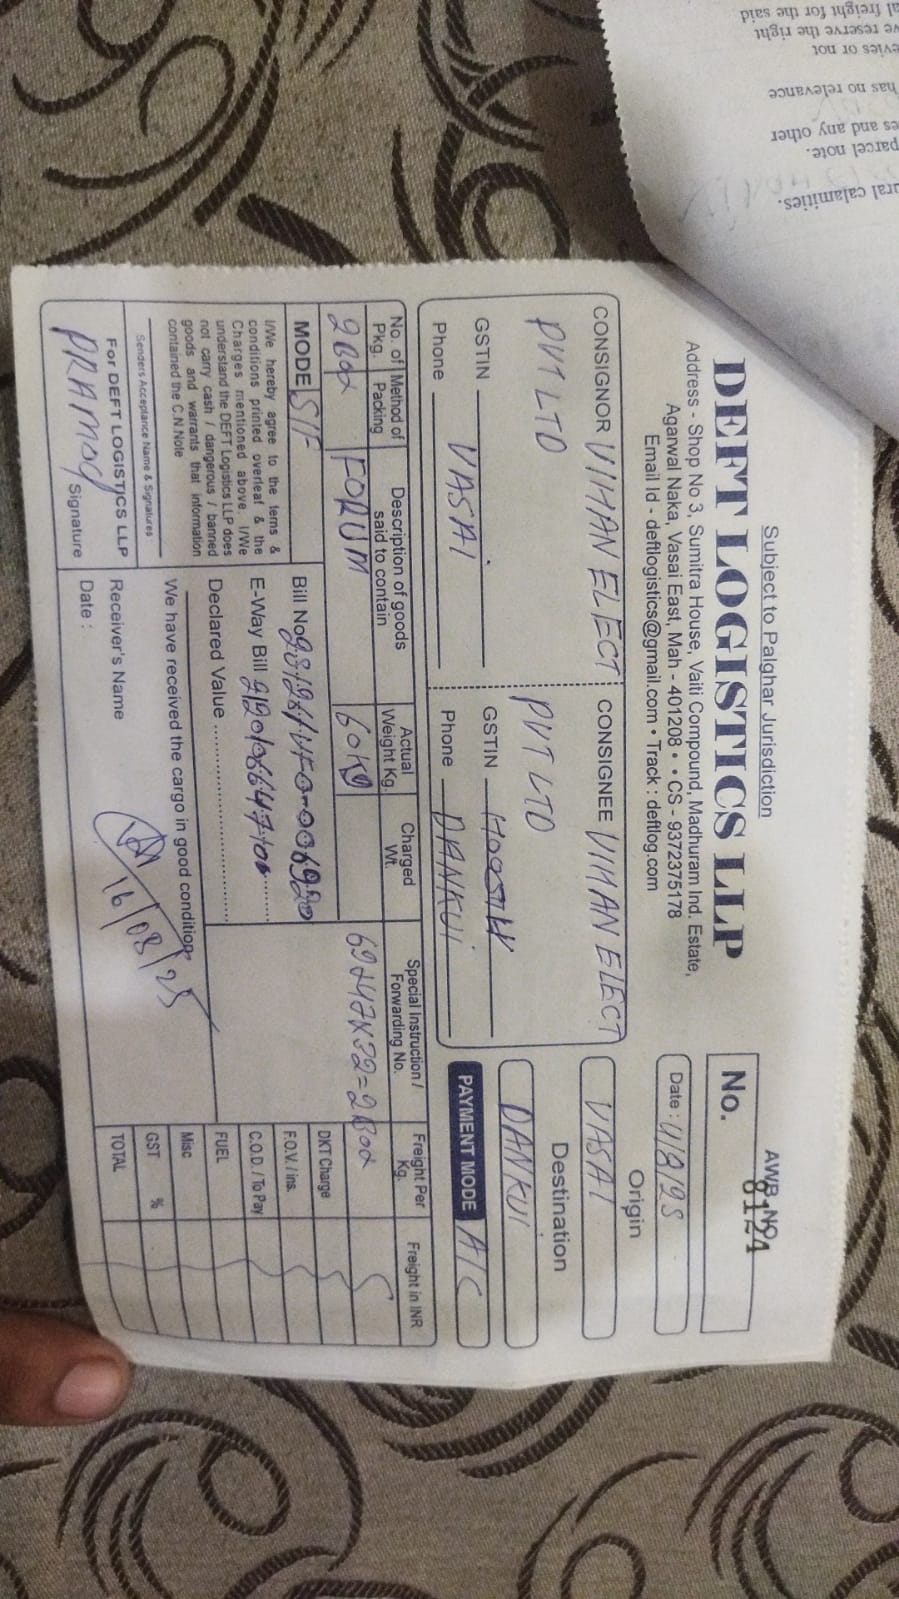 Subject to Palghar Jurisdiction
DEFT LOGISTICS LLP
Address - Shop No 3, Sumitra House, Vaiti Compound, Madhuram Ind. Estate,
Agarwal Naka, Vasai East, Mah - 401208 • • CS - 9372375178
Email Id - deftlogistics@gmail.com • Track : deftlog.com
AWB NO.
No. 8124
Date : 4/8/25
CONSIGNOR VIHAN ELECT
PVT LTD
GSTIN
Phone VASAI
CONSIGNEE VIHAN ELECT
PVT LTD
GSTIN
Phone DANKUI
Origin
VASAI
Destination
DANKUI
PAYMENT MODE A/C
No. of Pkg. Method of Packing Description of goods said to contain Actual Weight Kg. Charged Wt. Special Instruction / Forwarding No. Freight Per Kg. Freight in INR
2Box FORUM 60Kg
MODE S/F
Bill No
E-Way Bill
Declared Value
DKT Charge
F.O.V. / ins.
C.O.D. / To Pay
FUEL
Misc
GST %
TOTAL
I/We hereby agree to the terms &
conditions printed overleaf & the
Charges mentioned above. I/We
understand the DEFT Logistics LLP does
not carry cash / dangerous / banned
goods and warrants that information
contained the C.N.Note
Senders Acceptance Name & Signatures
For DEFT LOGISTICS LLP
PRAMOG Signature
We have received the cargo in good condition
Receiver's Name
Date :
16/08/25
al freight for the said
ve reserve the right
evies or not
has no relevance
es and any other
parcel note.
ural calamities.